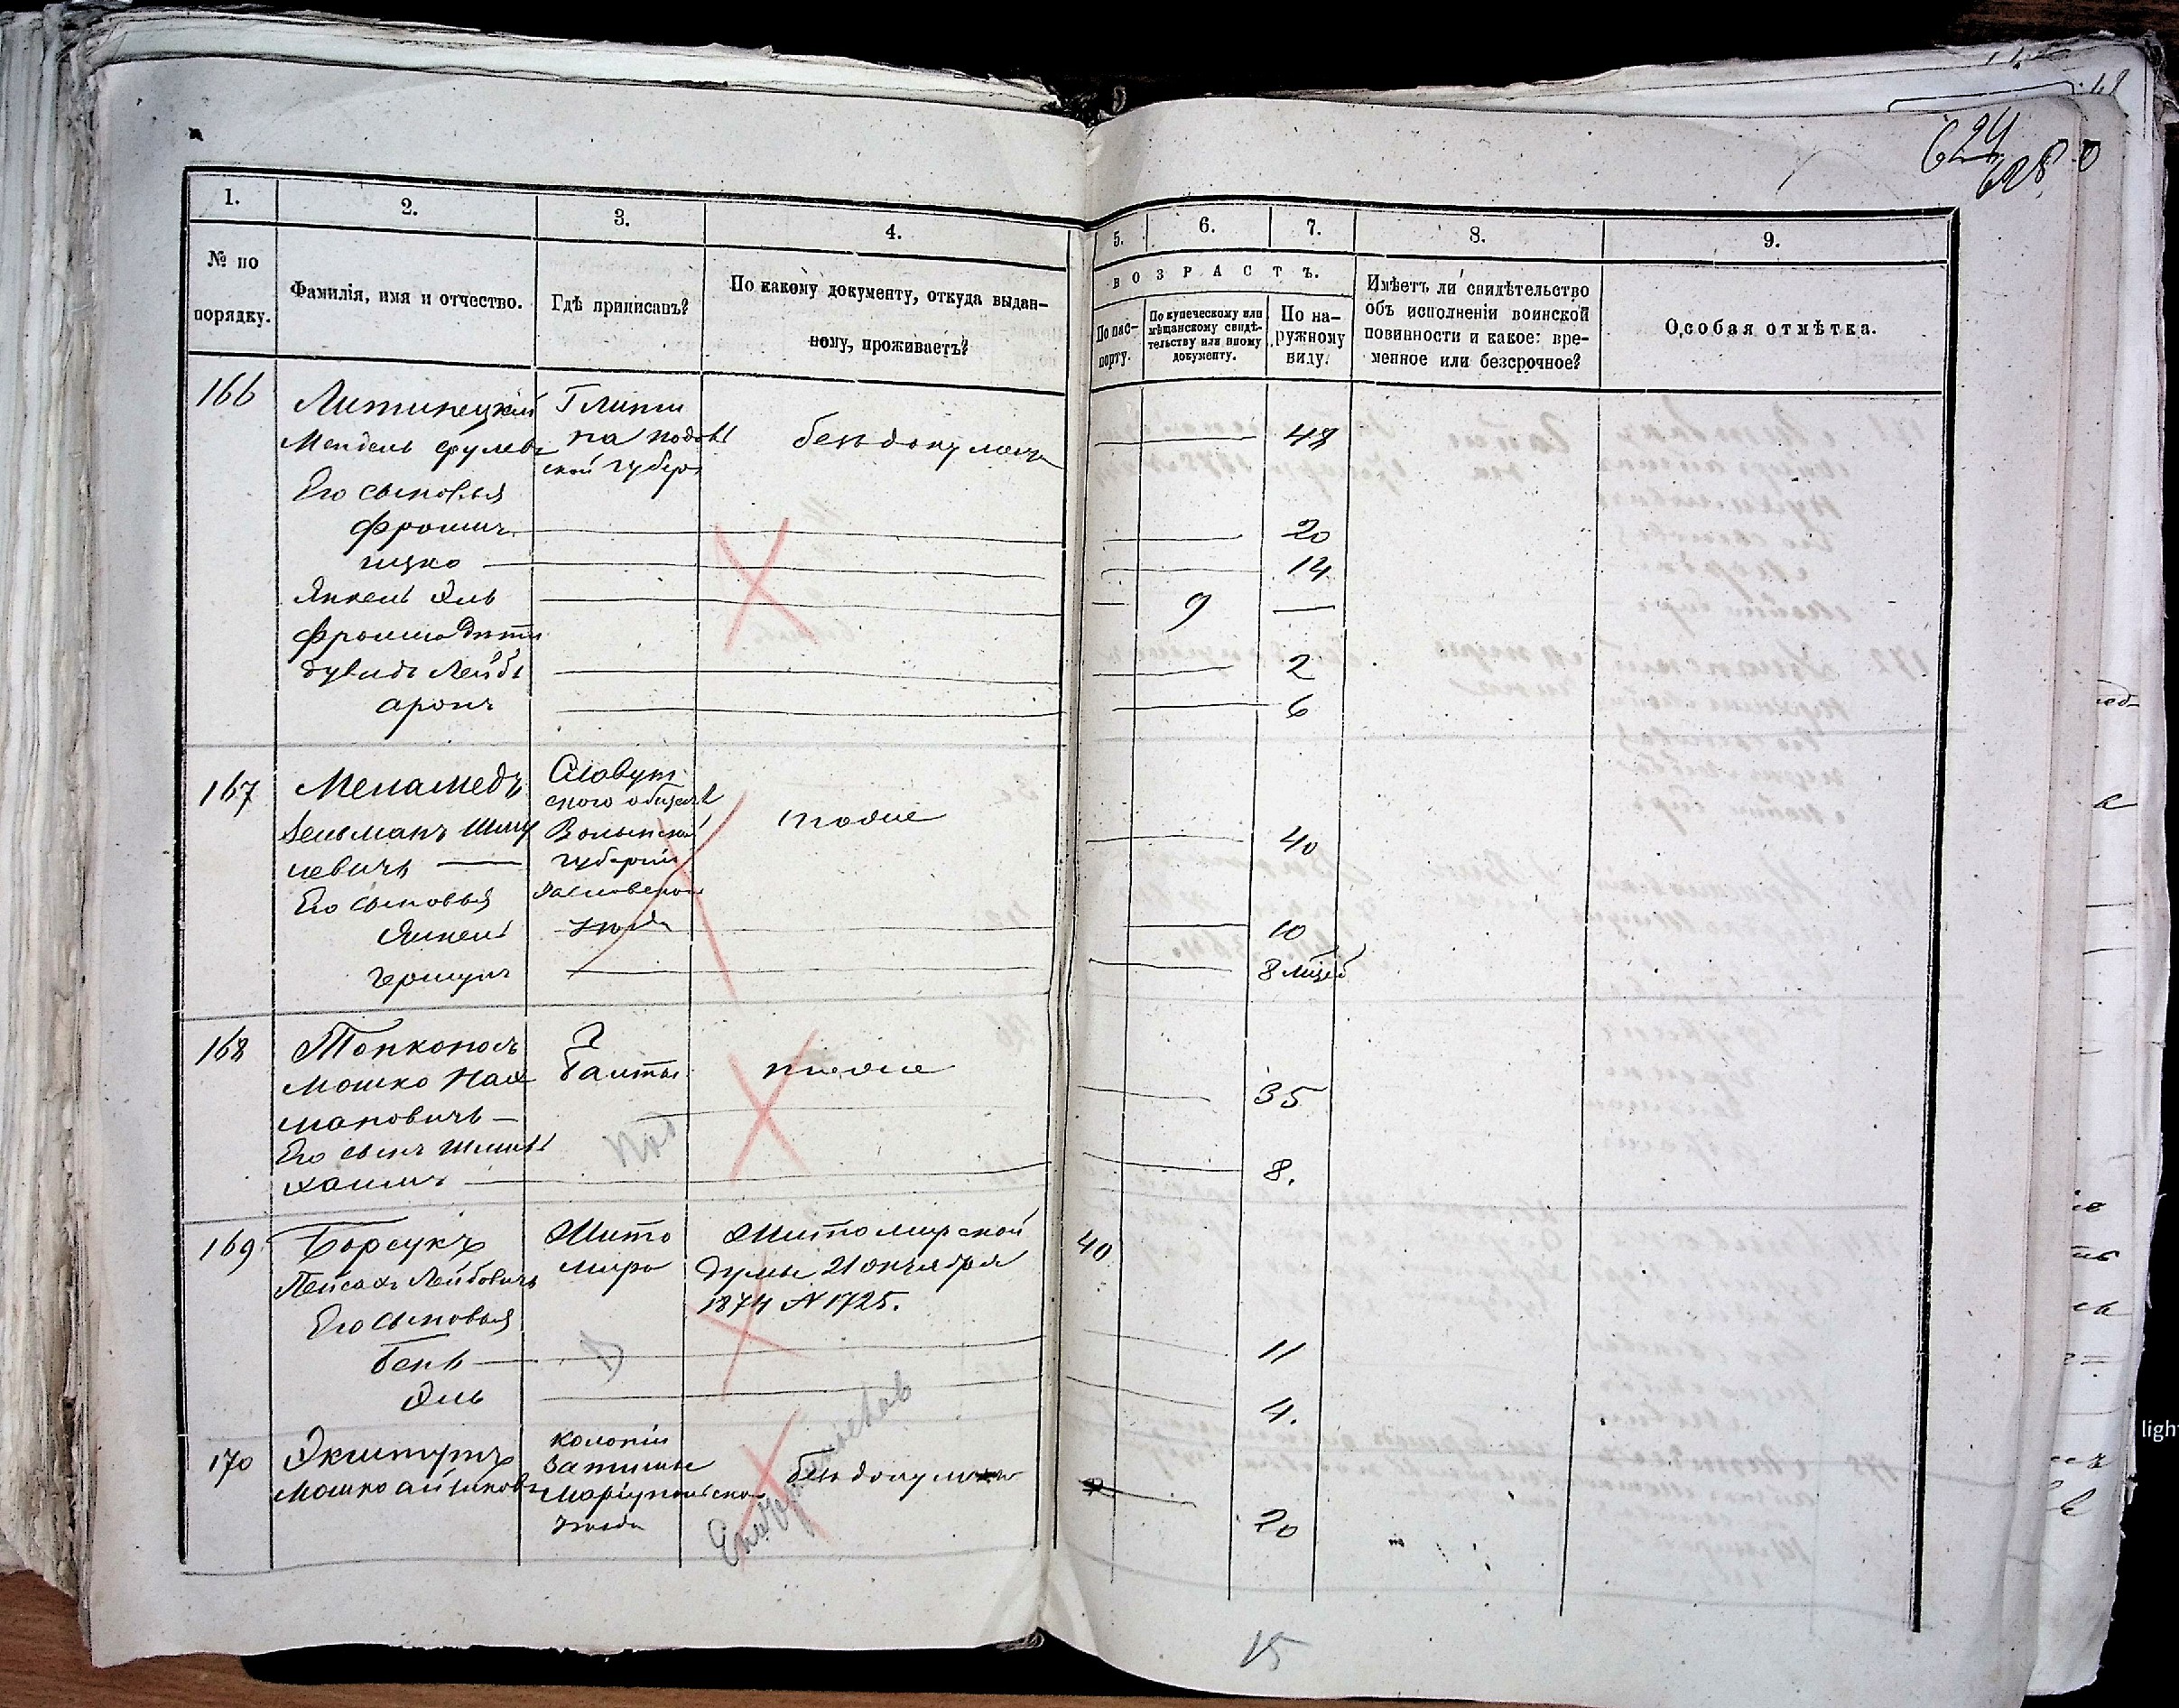 624
628
1.
2.
3.
4.
5.
6.
7.
8.
9.
№ по порядку.
Фамилія, имя и отчество.
Гдѣ приписанъ?
По какому документу, откуда выдан-
ному, проживаетъ?
ВОЗРАСТЪ.
По пас-
порту.
По купеческому или
мѣщанскому свидѣ-
тельству или иному
документу.
По на-
ружному
виду.
Имѣетъ ли свидѣтельство
объ исполненіи воинской
повинности и какое: вре-
менное или безсрочное?
Особая отмѣтка.
166
Литинецкій
Мендель Срулев
Его сыновья
Фроимъ
ицко
Янкель Эль
Фроима дѣти
Дувидъ Лейбь
аронъ
Г Лити
на подоль
ской губерн
безъ докумен
48
20
14
9
2
6
167
Меламедъ
Зельманъ Шму
левичъ
Его сыновья
Янкель
Гершунъ
Славут
ского обществ
Волынской
губерніи
Заславского
уезда
тоже
40
10
8 мѣсяц
168
мошко Нах
мановичъ
Его сынъ
хаимъ
Г
Балты
тоже
35
8.
169
Борсукъ
Пейсахъ Лейбовичъ
Его сыновья
Бень
Эль
Жито
миръ
Житомирской
думы 21 октября
1874 № 1725.
40
11
4.
170
Мошко
колоніи
Затишье
Маріупольско
уезда
безъ докумен
20
15
ligh